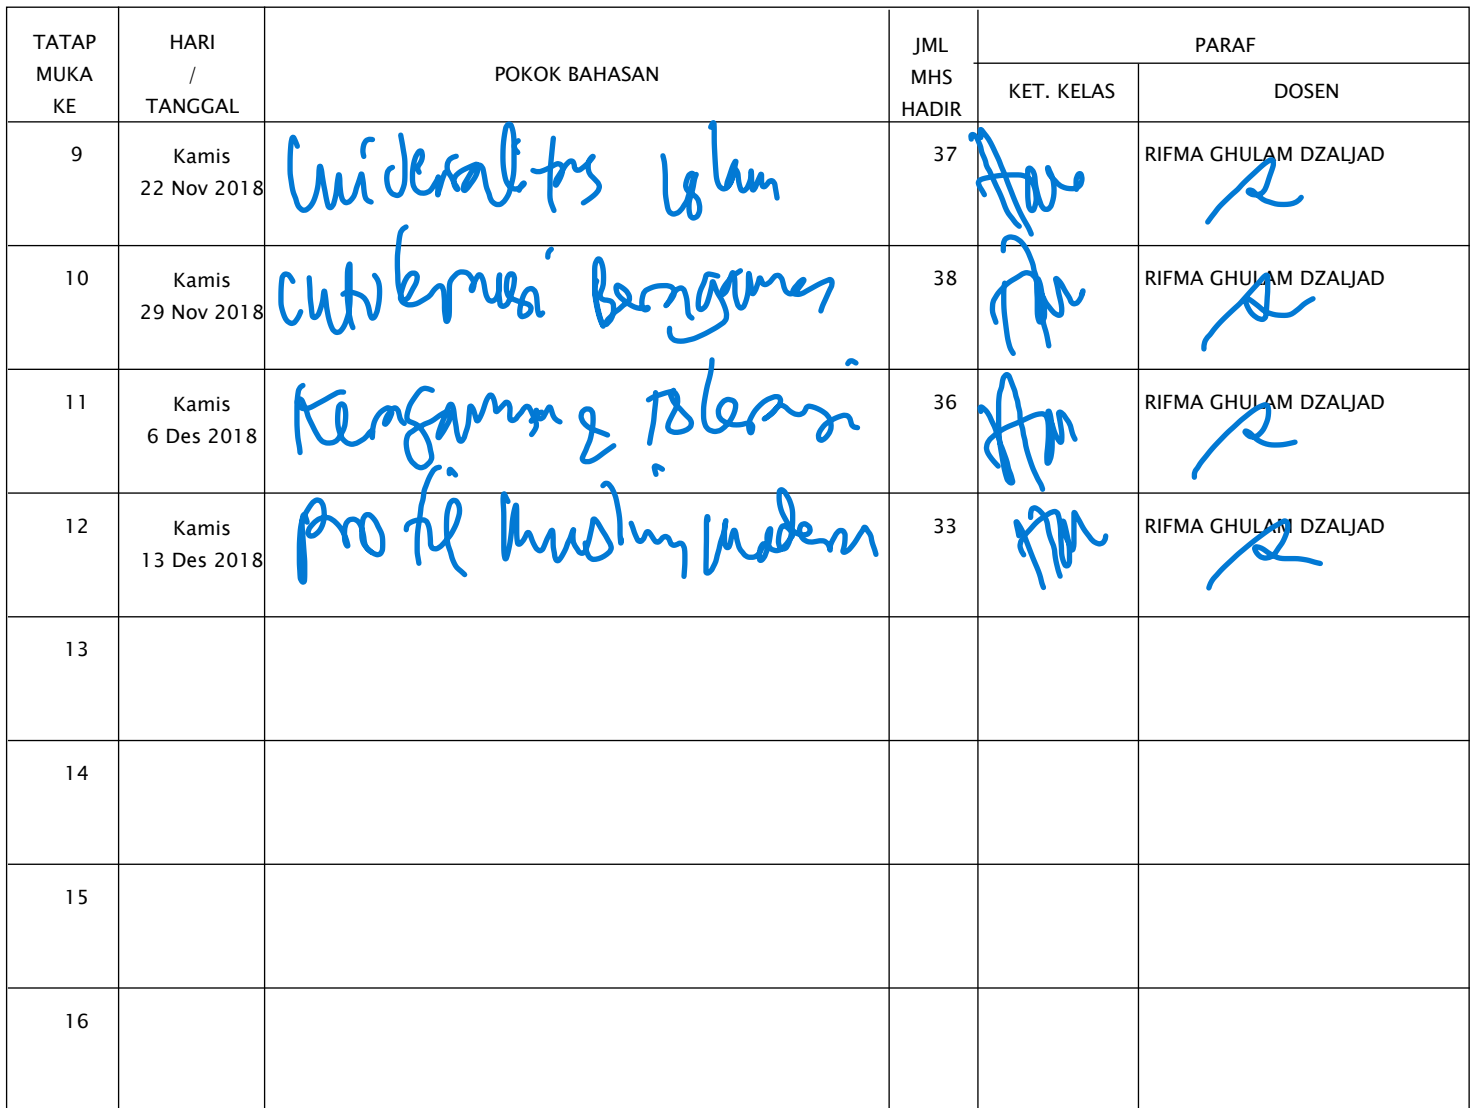 TATAP MUKA KE
HARI / TANGGAL
POKOK BAHASAN
JML MHS HADIR
PARAF
KET. KELAS
DOSEN
9
Kamis
22 Nov 2018
Universalitas Islam
37
RIFMA GHULAM DZALJAD
10
Kamis
29 Nov 2018
intoleransi Beragama
38
RIFMA GHULAM DZALJAD
11
Kamis
6 Des 2018
Keragaman & Toleransi
36
RIFMA GHULAM DZALJAD
12
Kamis
13 Des 2018
Profil Muslim Modern
33
RIFMA GHULAM DZALJAD
13
14
15
16